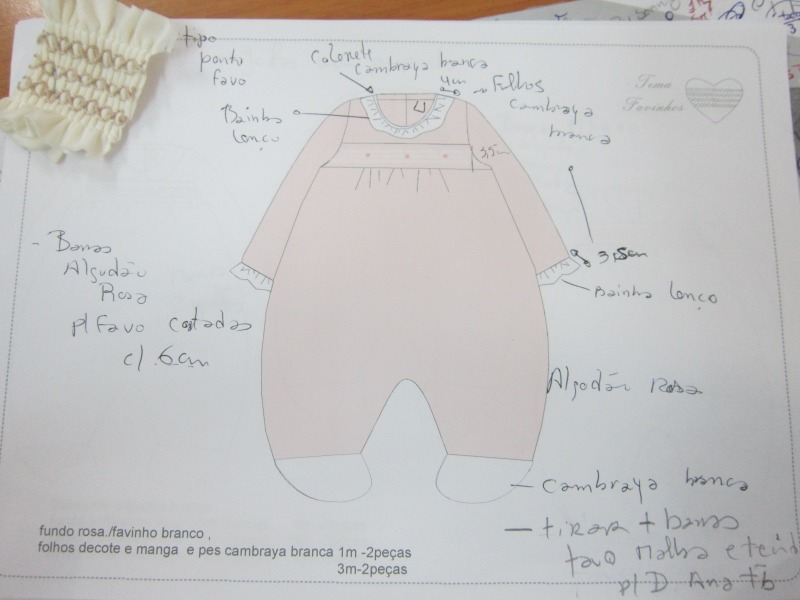 tipo
ponto
favo
Colarete
Cambraya branca
4cm
Folhos
Cambraya
branca
Bainha
lenço
Tema
Favinhos
3,5cm
3,5cm
Bainha lenço
- Barras
Algodão
Rosa
p/ Favo cortadas
c/ 6cm
Algodão Rosa
— Cambraya branca
— tirar + barras
favo Malha e
p/ D Ana tb
fundo rosa./favinho branco ,
folhos decote e manga e pes cambraya branca 1m -2peças
3m-2peças